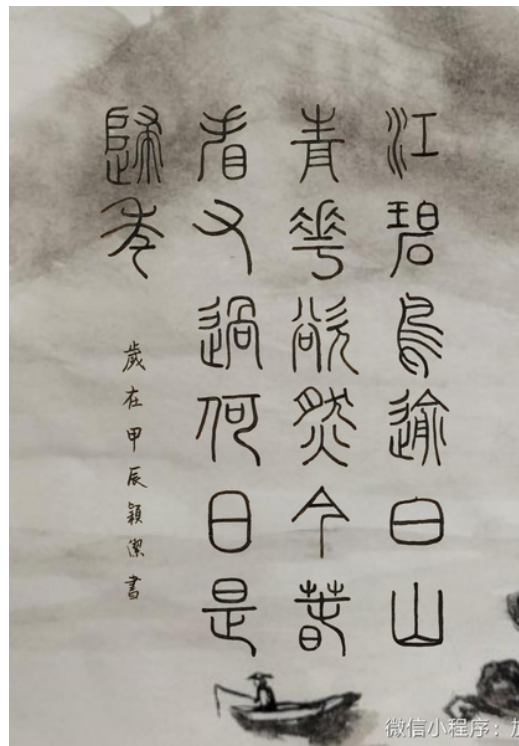 江碧鳥逾白山
青花欲然今春
看又過何日是
歸年
歲在甲辰穎潔書
微信小程序：